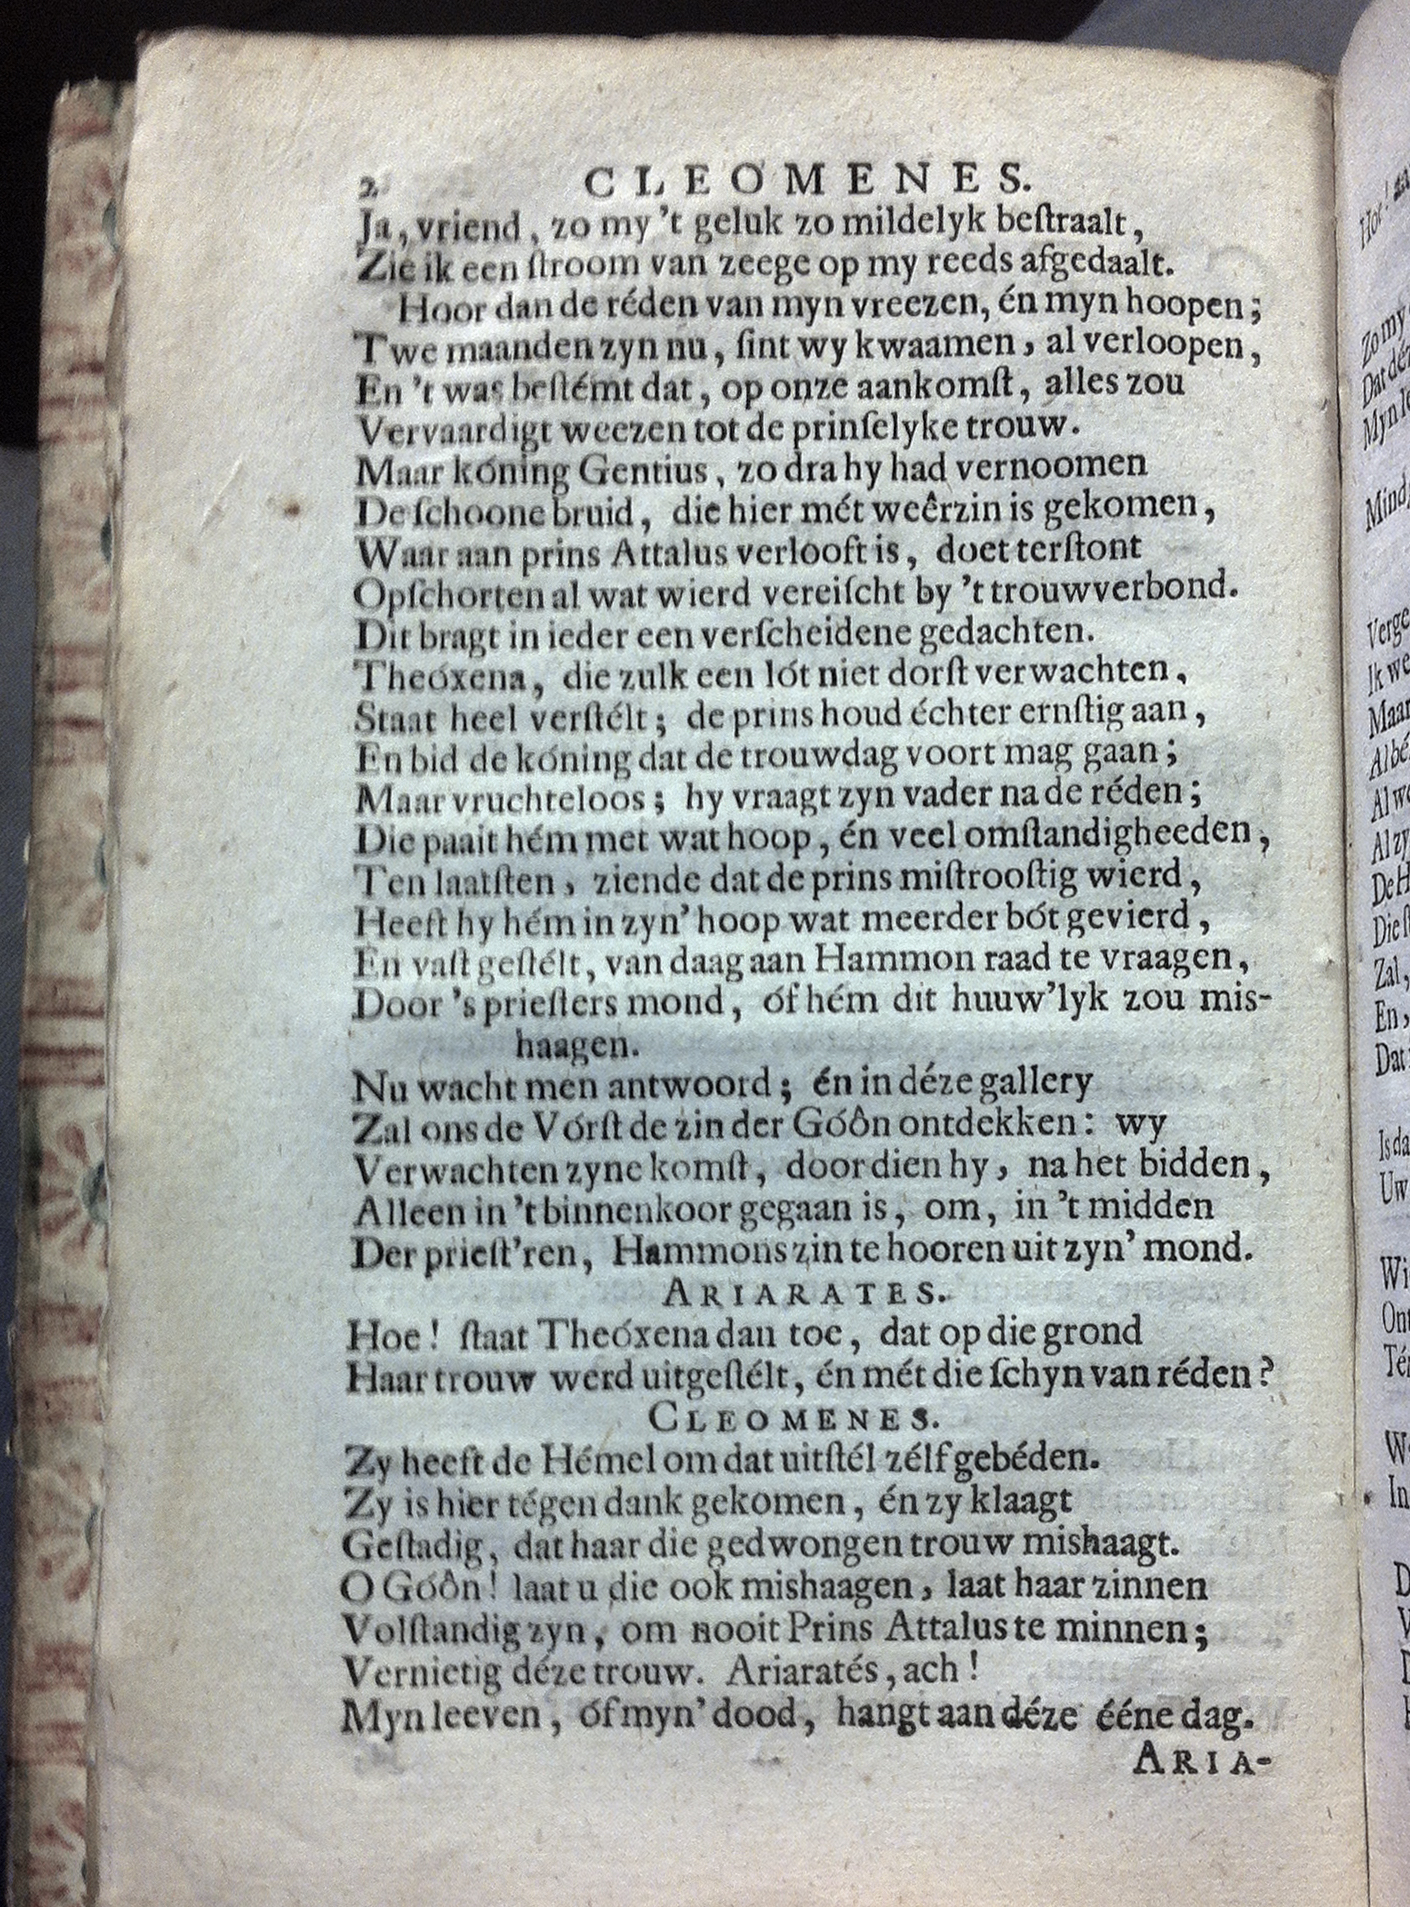 2 CLEOMENES.
Ja, vriend, zo my 't geluk zo mildelyk beſtraalt,
Zie ik een ſtroom van zeege op my reeds afgedaalt.
Hoor dan de réden van myn vreezen, én myn hoopen;
Twe maanden zyn nu, ſint wy kwaamen, al verloopen,
En 't was beſtémt dat, op onze aankomſt, alles zou
Vervaardigt weezen tot de prinſelyke trouw.
Maar kóning Gentius, zo dra hy had vernoomen
De ſchoone bruid, die hier mét weêrzin is gekomen,
Waar aan prins Attalus verlooft is, doet terſtont
Opſchorten al wat wierd vereiſcht by 't trouwverbond.
Dit bragt in ieder een verſcheidene gedachten.
Theóxena, die zulk een lót niet dorſt verwachten,
Staat heel verſtélt; de prins houd échter ernſtig aan,
En bid de kóning dat de trouwdag voort mag gaan;
Maar vruchteloos; hy vraagt zyn vader na de réden;
Die paait hém met wat hoop, én veel omſtandigheeden,
Ten laatſten, ziende dat de prins miſtrooſtig wierd,
Heeft hy hém in zyn' hoop wat meerder bót gevierd,
En vaſt geſtélt, van daag aan Hammon raad te vraagen,
Door 's prieſters mond, óf hém dit huuw'lyk zou mis-
haagen.
Nu wacht men antwoord; én in déze gallery
Zal ons de Vórſt de zin der Góôn ontdekken: wy
Verwachten zyne komſt, door dien hy, na het bidden,
Alleen in 't binnenkoor gegaan is, om, in 't midden
Der prieſt'ren, Hammons zin te hooren uit zyn' mond.
ARIARATES.
Hoe! ſtaat Theóxena dan toe, dat op die grond
Haar trouw werd uitgeſtélt, én mét die ſchyn van réden?
CLEOMENES.
Zy heeft de Hémel om dat uitſtél zélf gebéden.
Zy is hier tégen dank gekomen, én zy klaagt
Geſtadig, dat haar die gedwongen trouw mishaagt.
O Góôn! laat u die ook mishaagen, laat haar zinnen
Volſtandig zyn, om nooit Prins Attalus te minnen;
Vernietig déze trouw. Ariaratés, ach!
Myn leeven, óf myn' dood, hangt aan déze ééne dag.
ARIA-